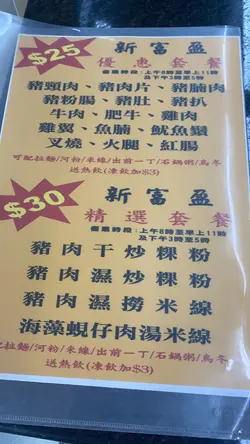 $25
新富盈
優惠套餐
優惠時段：上午8時至早上11時
及下午3時至5時
豬頸肉、豬肉片、豬腩肉
豬粉腸、豬肚、豬扒
牛肉、肥牛、雞肉
雞翼、魚腩、魷魚鬚
叉燒、火腿、紅腸
可配拉麵/河粉/米線/出前一丁/石鍋粥/烏冬
送熱飲(凍飲加$3)
$30
新富盈
精選套餐
優惠時段：上午8時至早上11時
及下午3時至5時
豬肉干炒粿粉
豬肉濕炒粿粉
豬肉濕撈米線
海藻蜆仔肉湯米線
配拉麵/河粉/米線/出前一丁/石鍋粥/烏冬
送熱飲(凍飲加$3)